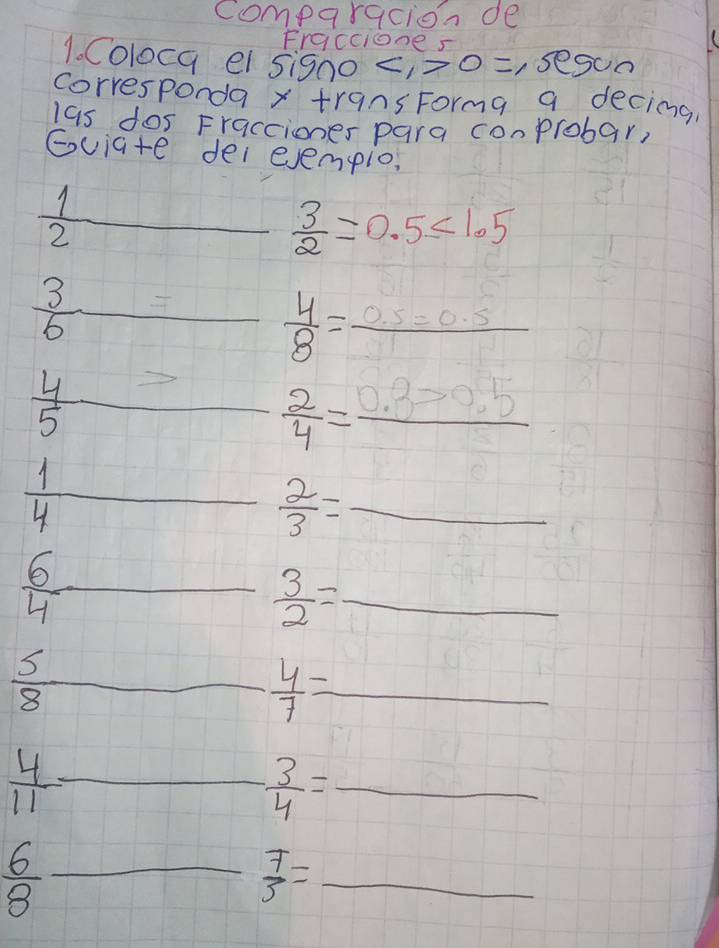 Comparación de
Fracciones
1. Coloca el signo <, > o =, segun
corresponda y transforma a decimal
las dos Fracciones para conprobar,
Guiate del ejemplo.
1/2 ______ 3/2 = 0.5 < 1.5
3/6 ___=___ 4/8 = 0.5 = 0.5
4/5 ___>___ 2/4 = 0.8 > 0.5
1/4 ______ 2/3 = ______
6/4 ______ 3/2 = ______
5/8 ______ 4/7 = ______
4/11 ______ 3/4 = ______
6/8 ______ 7/3 = ______